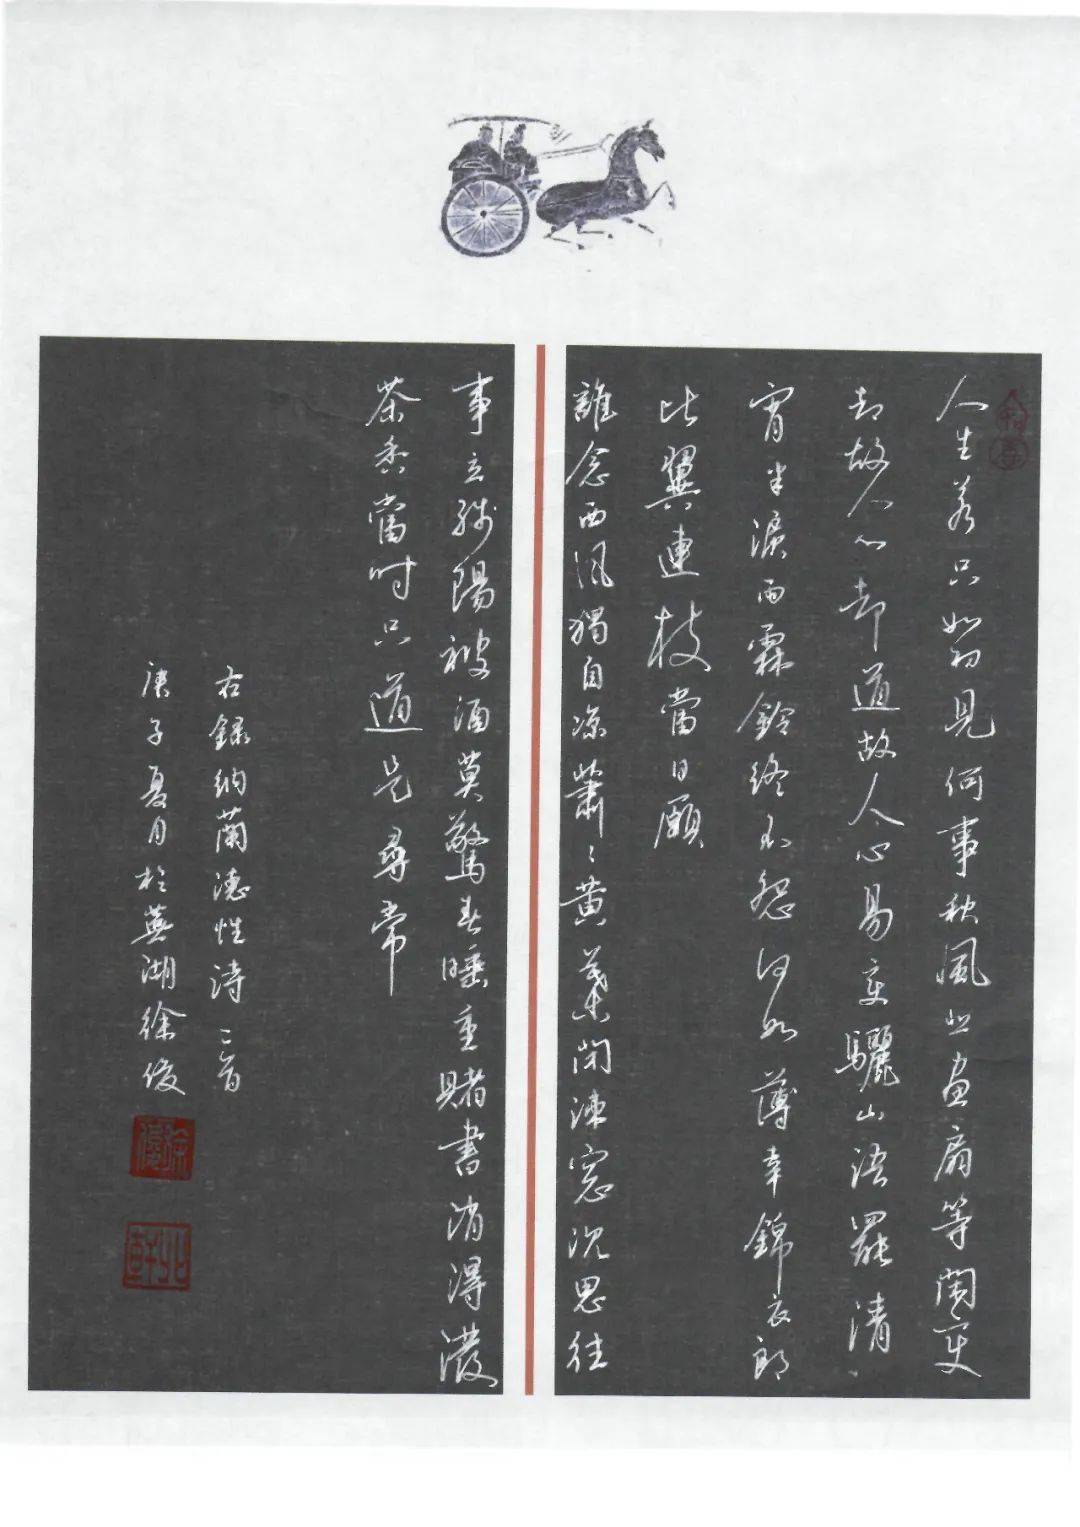 人生若只如初見何事秋風悲画扇等閑变
却故人心却道故人心易变驪山语罷清
宵半淚雨霖鈴終不怨何如薄幸錦衣郎
比翼連枝當日願
誰念西風獨自凉蕭〻黄葉閉疎窓沉思往
事立殘陽被酒莫驚春睡重賭書消得潑
茶香當時只道是尋常
右録納蘭德性詩二首
庚子夏月於蕪湖徐俊
徐俊